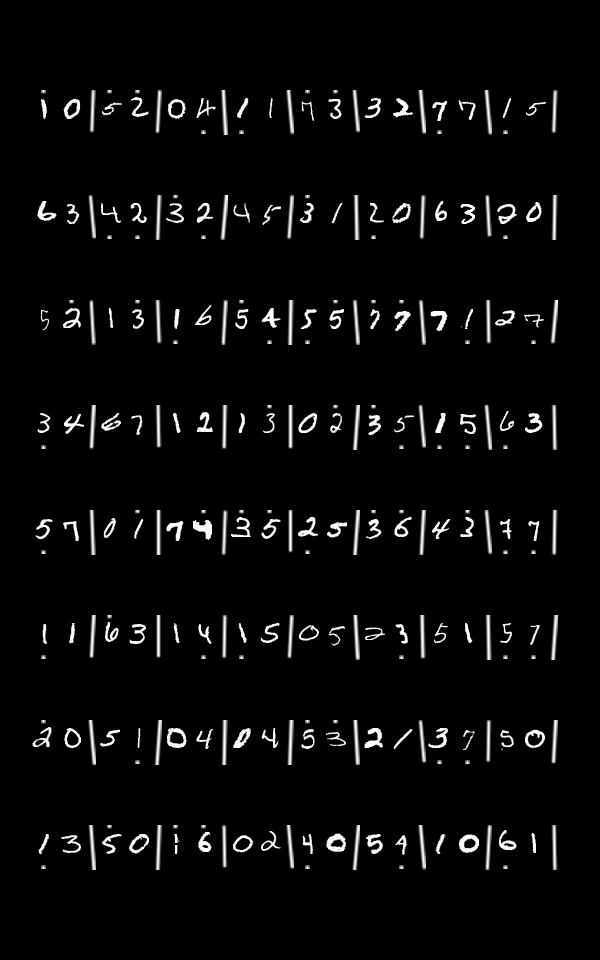 1̇ 0 | 5̇ 2̇ | 0 4̣ | 1̣ 1 | 7̇ 3̇ | 3 2 | 7̣ 7 | 1̣ 5 |
6 3 | 4̣ 2̣ | 3̇ 2̣ | 4 5 | 3̇ 1 | 2̣ 0 | 6 3 | 2̣ 0 |
5 2̇ | 1 3̇ | 1̣ 6 | 5̇ 4̣ | 5̣ 5̇ | 7̇ 7̇ | 7 1̣ | 2 7̣ |
3̣ 4 | 6 7 | 1 2 | 1 3̇ | 0 2̇ | 3̇ 5̣ | 1̣ 5̣ | 6̣ 3 |
5̣ 7 | 0 1̇ | 7 4̇ | 3̇ 5̇ | 2̣ 5 | 3̇ 6̇ | 4 3̇ | 7̣ 7̣ |
1̣ 1 | 6̇ 3 | 1 4̣ | 1̣ 5 | 0 5 | 2 3̣ | 5 1 | 5̣ 7̣ |
2̇ 0 | 5 1̣ | 0 4 | 0 4 | 5̇ 3̇ | 2 1 | 3̣ 7̣ | 5 0 |
1̣ 3 | 5̇ 0 | 1̇ 6̇ | 0 2 | 4̣ 0 | 5 4̣ | 1 0 | 6̣ 1 |